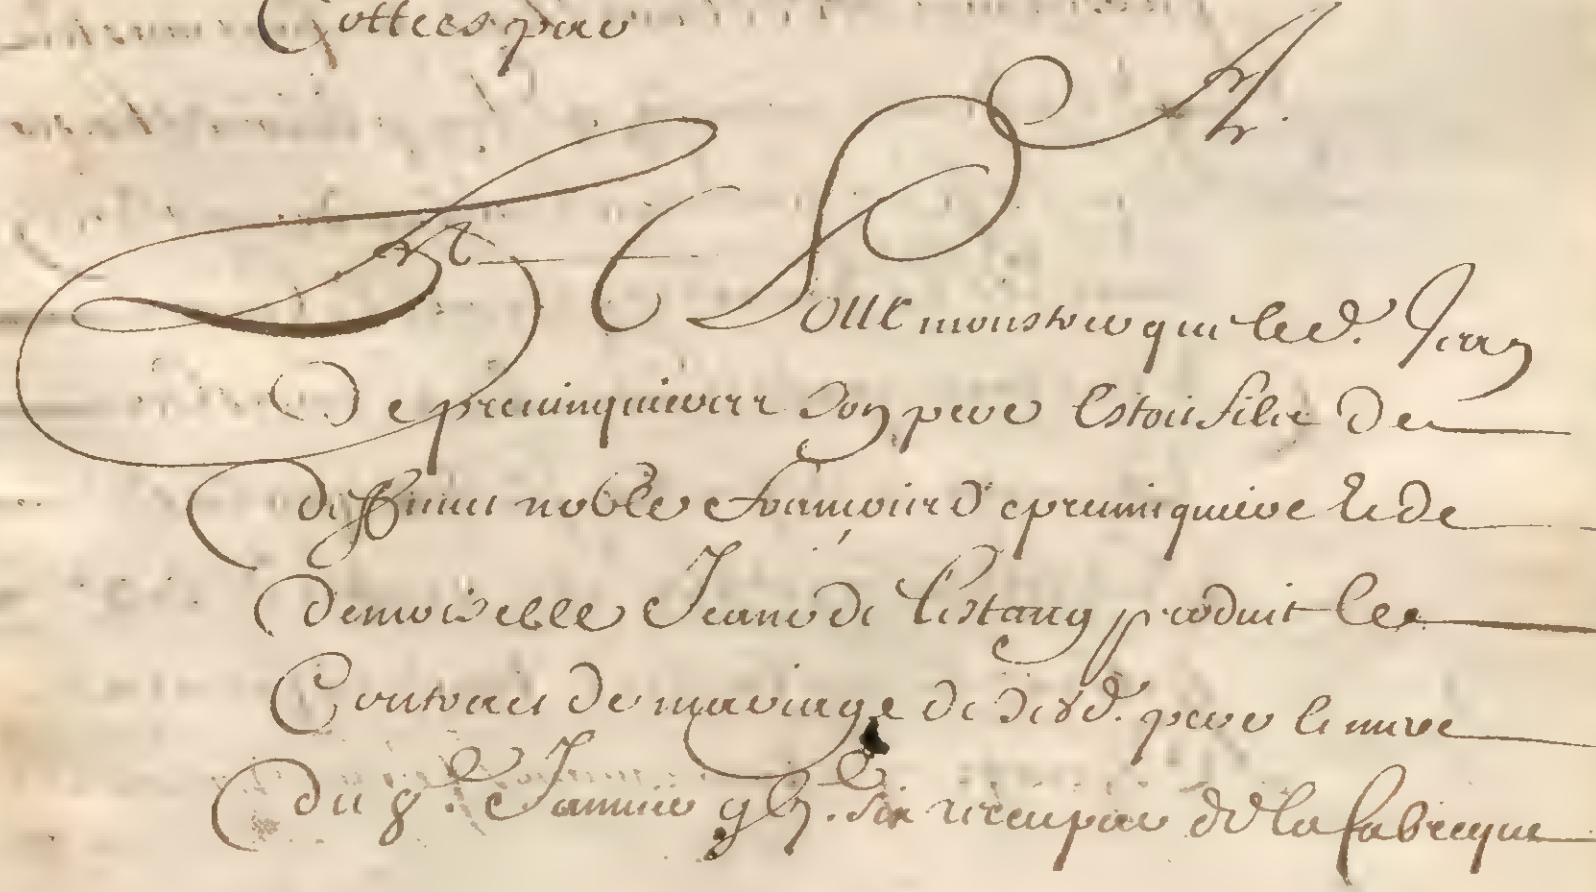 Cottees par
Et Pour monstrer que led. Jean
De preminquieres son pere Estoit filz De
deffunct noble francois de preminquiere Et de
demoiselle Jeane de Lestang produit le
Contract de mariage de sesd. pere Et mere
du 8.e Janvier six receu par de la fabrecque